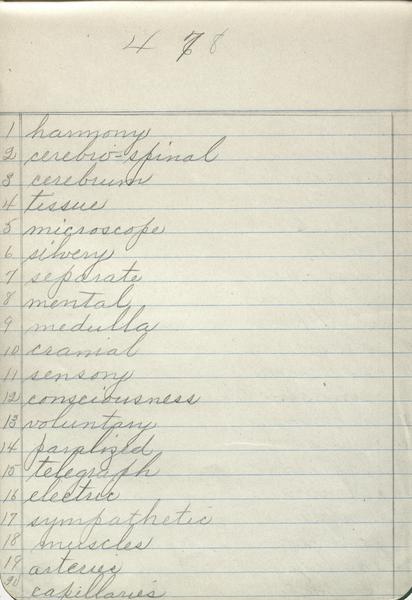 4 78
1 harmony
2 cerebro-spinal
3 cerebrum
4 tissue
5 microscope
6 silvery
7 separate
8 mental
9 medulla
10 cranial
11 sensory
12 consciousness
13 voluntary
14 paralized
15 telegraph
16 electric
17 sympathetic
18 muscles
19 arteries
20 capillaries